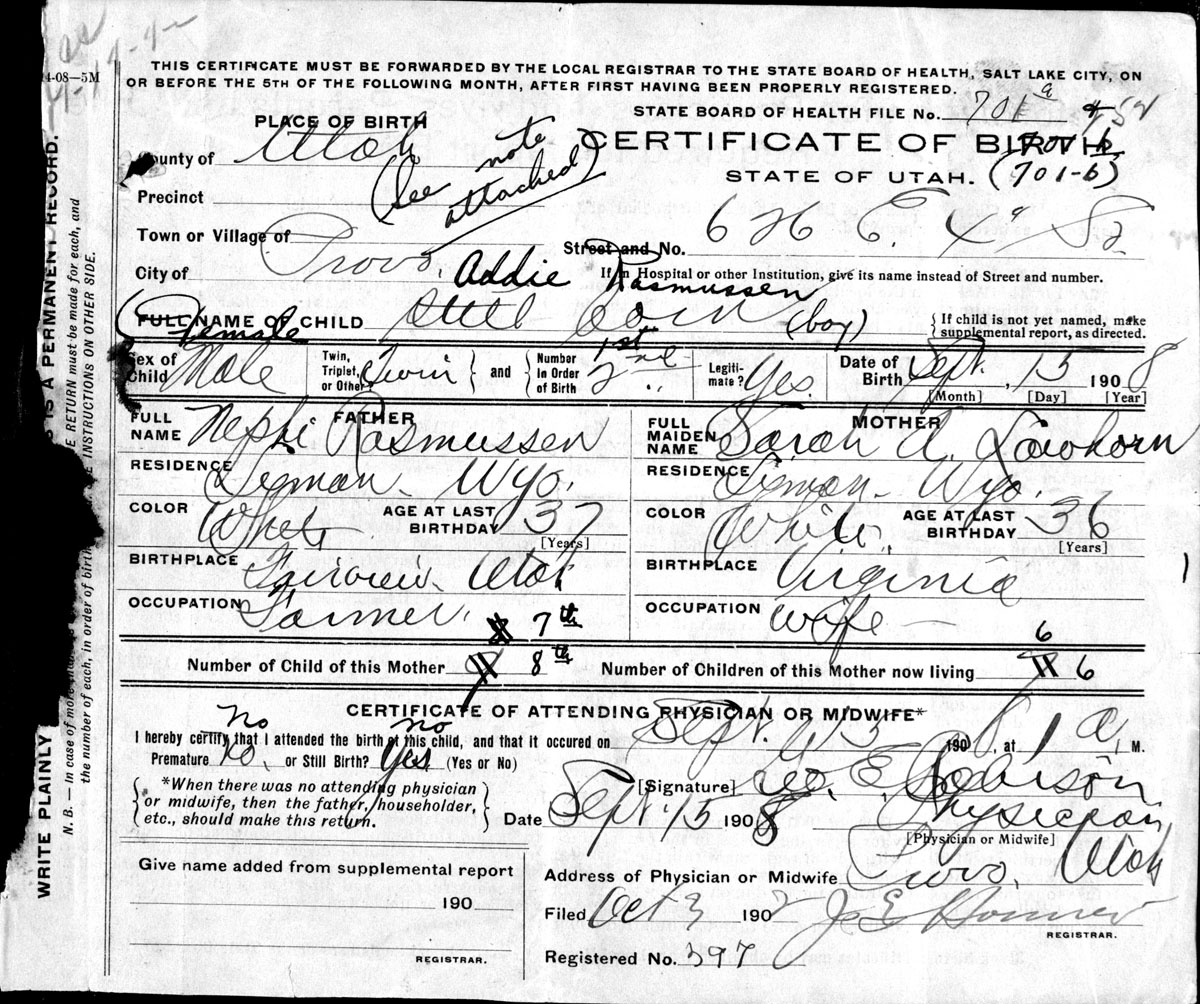 4-08—5M
THIS CERTIFICATE MUST BE FORWARDED BY THE LOCAL REGISTRAR TO THE STATE BOARD OF HEALTH, SALT LAKE CITY, ON
OR BEFORE THE 5TH OF THE FOLLOWING MONTH, AFTER FIRST HAVING BEEN PROPERLY REGISTERED.
STATE BOARD OF HEALTH FILE No. 701a
PLACE OF BIRTH
CERTIFICATE OF BIRTH
County of Utah
(See note attached)
STATE OF UTAH. (701-b)
Precinct
Town or Village of
Street and No. 626 E. 4th So.
City of Provo.
If in Hospital or other Institution, give its name instead of Street and number.
Addie Rasmussen
FULL NAME OF CHILD Still born (boy)
{ If child is not yet named, make
supplemental report, as directed.
Female
Sex of Child Male
Twin, Triplet, or Other? Twin } and { Number in Order of Birth 1st 2nd
Legitimate? Yes.
Date of Birth Sept. 15 1908
[Month] [Day] [Year]
FATHER
MOTHER
FULL NAME Nephi Rasmussen
FULL MAIDEN NAME Sarah A. Lawhorn
RESIDENCE Lyman Wyo.
RESIDENCE Lyman Wyo.
COLOR White AGE AT LAST BIRTHDAY 37
[Years]
COLOR White AGE AT LAST BIRTHDAY 36
[Years]
BIRTHPLACE Fairview Utah
BIRTHPLACE Virginia
OCCUPATION Farmer.
OCCUPATION Wife
7th
6
Number of Child of this Mother 8th
Number of Children of this Mother now living 6
CERTIFICATE OF ATTENDING PHYSICIAN OR MIDWIFE*
No
no
I hereby certify that I attended the birth of this child, and that it occured on Sept. 1908, at 1 a. M.
Premature No. or Still Birth? Yes (Yes or No)
*When there was no attending physician
or midwife, then the father, householder,
etc., should make this return.
[Signature]
Physician
Date Sept. 15 1908
[Physician or Midwife]
Give name added from supplemental report
190
REGISTRAR.
Address of Physician or Midwife Provo, Utah
Filed Oct 3 190
REGISTRAR.
Registered No. 397
WRITE PLAINLY
IS A PERMANENT RECORD.
N. B.—In case of more
RETURN must be made for each, and
the number of each, in order of birth
INSTRUCTIONS ON OTHER SIDE.